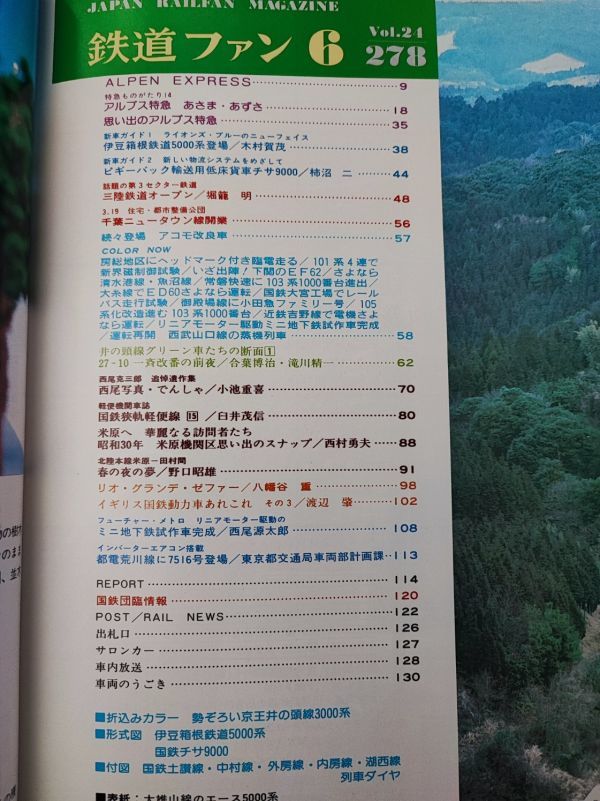 JAPAN RAILFAN MAGAZINE
鉄道ファン 6 Vol.24 278
ALPEN EXPRESS 9
特急ものがたり14
アルプス特急 あさま・あずさ 18
思い出のアルプス特急 35
新車ガイド1 ライオンズ・ブルーのニューフェイス
伊豆箱根鉄道5000系登場/木村賀茂 38
新車ガイド2 新しい物流システムをめざして
ピギーバック輸送用低床貨車チサ9000/柿沼 二 44
話題の第3セクター鉄道
三陸鉄道オープン/堀籠 明 48
3.19 住宅・都市整備公団
千葉ニュータウン線開業 56
続々登場 アコモ改良車 57
COLOR NOW
房総地区にヘッドマーク付き臨電走る/101系4連で
新界磁制御試験/いざ出陣!下関のEF62/さよなら
清水港線・魚沼線/常磐快速に103系1000番台進出/
大糸線でED60さよなら運転/国鉄大宮工場でレール
バス走行試験/御殿場線に小田急ファミリー号/105
系化改造進む103系1000番台/近鉄吉野線で電機さよ
なら運転/リニアモーター駆動ミニ地下鉄試作車完成
/運転再開 西武山口線の蒸機列車 58
井の頭線グリーン車たちの断面1
27-10 一斉改番の前夜/合葉博治・滝川精一 62
西尾克三郎 追悼遺作集
西尾写真・でんしゃ/小池重喜 70
軽便機関車誌
国鉄狭軌軽便線 15 /臼井茂信 80
米原へ 華麗なる訪問者たち
昭和30年 米原機関区思い出のスナップ/西村勇夫 88
北陸本線米原-田村間
春の夜の夢/野口昭雄 91
リオ・グランデ・ゼファー/八幡谷 重 98
イギリス国鉄動力車あれこれ その3/渡辺 肇 102
フューチャー・メトロ リニアモーター駆動の
ミニ地下鉄試作車完成/西尾源太郎 108
インバーターエアコン搭載
都電荒川線に7516号登場/東京都交通局車両部計画課 113
REPORT 114
国鉄団臨情報 120
POST/RAIL NEWS 122
出札口 126
サロンカー 127
車内放送 128
車両のうごき 130
■折込みカラー 勢ぞろい京王井の頭線3000系
■形式図 伊豆箱根鉄道5000系
国鉄チサ9000
■付図 国鉄土讃線・中村線・外房線・内房線・湖西線
列車ダイヤ
■表紙:大雄山線のエース5000系